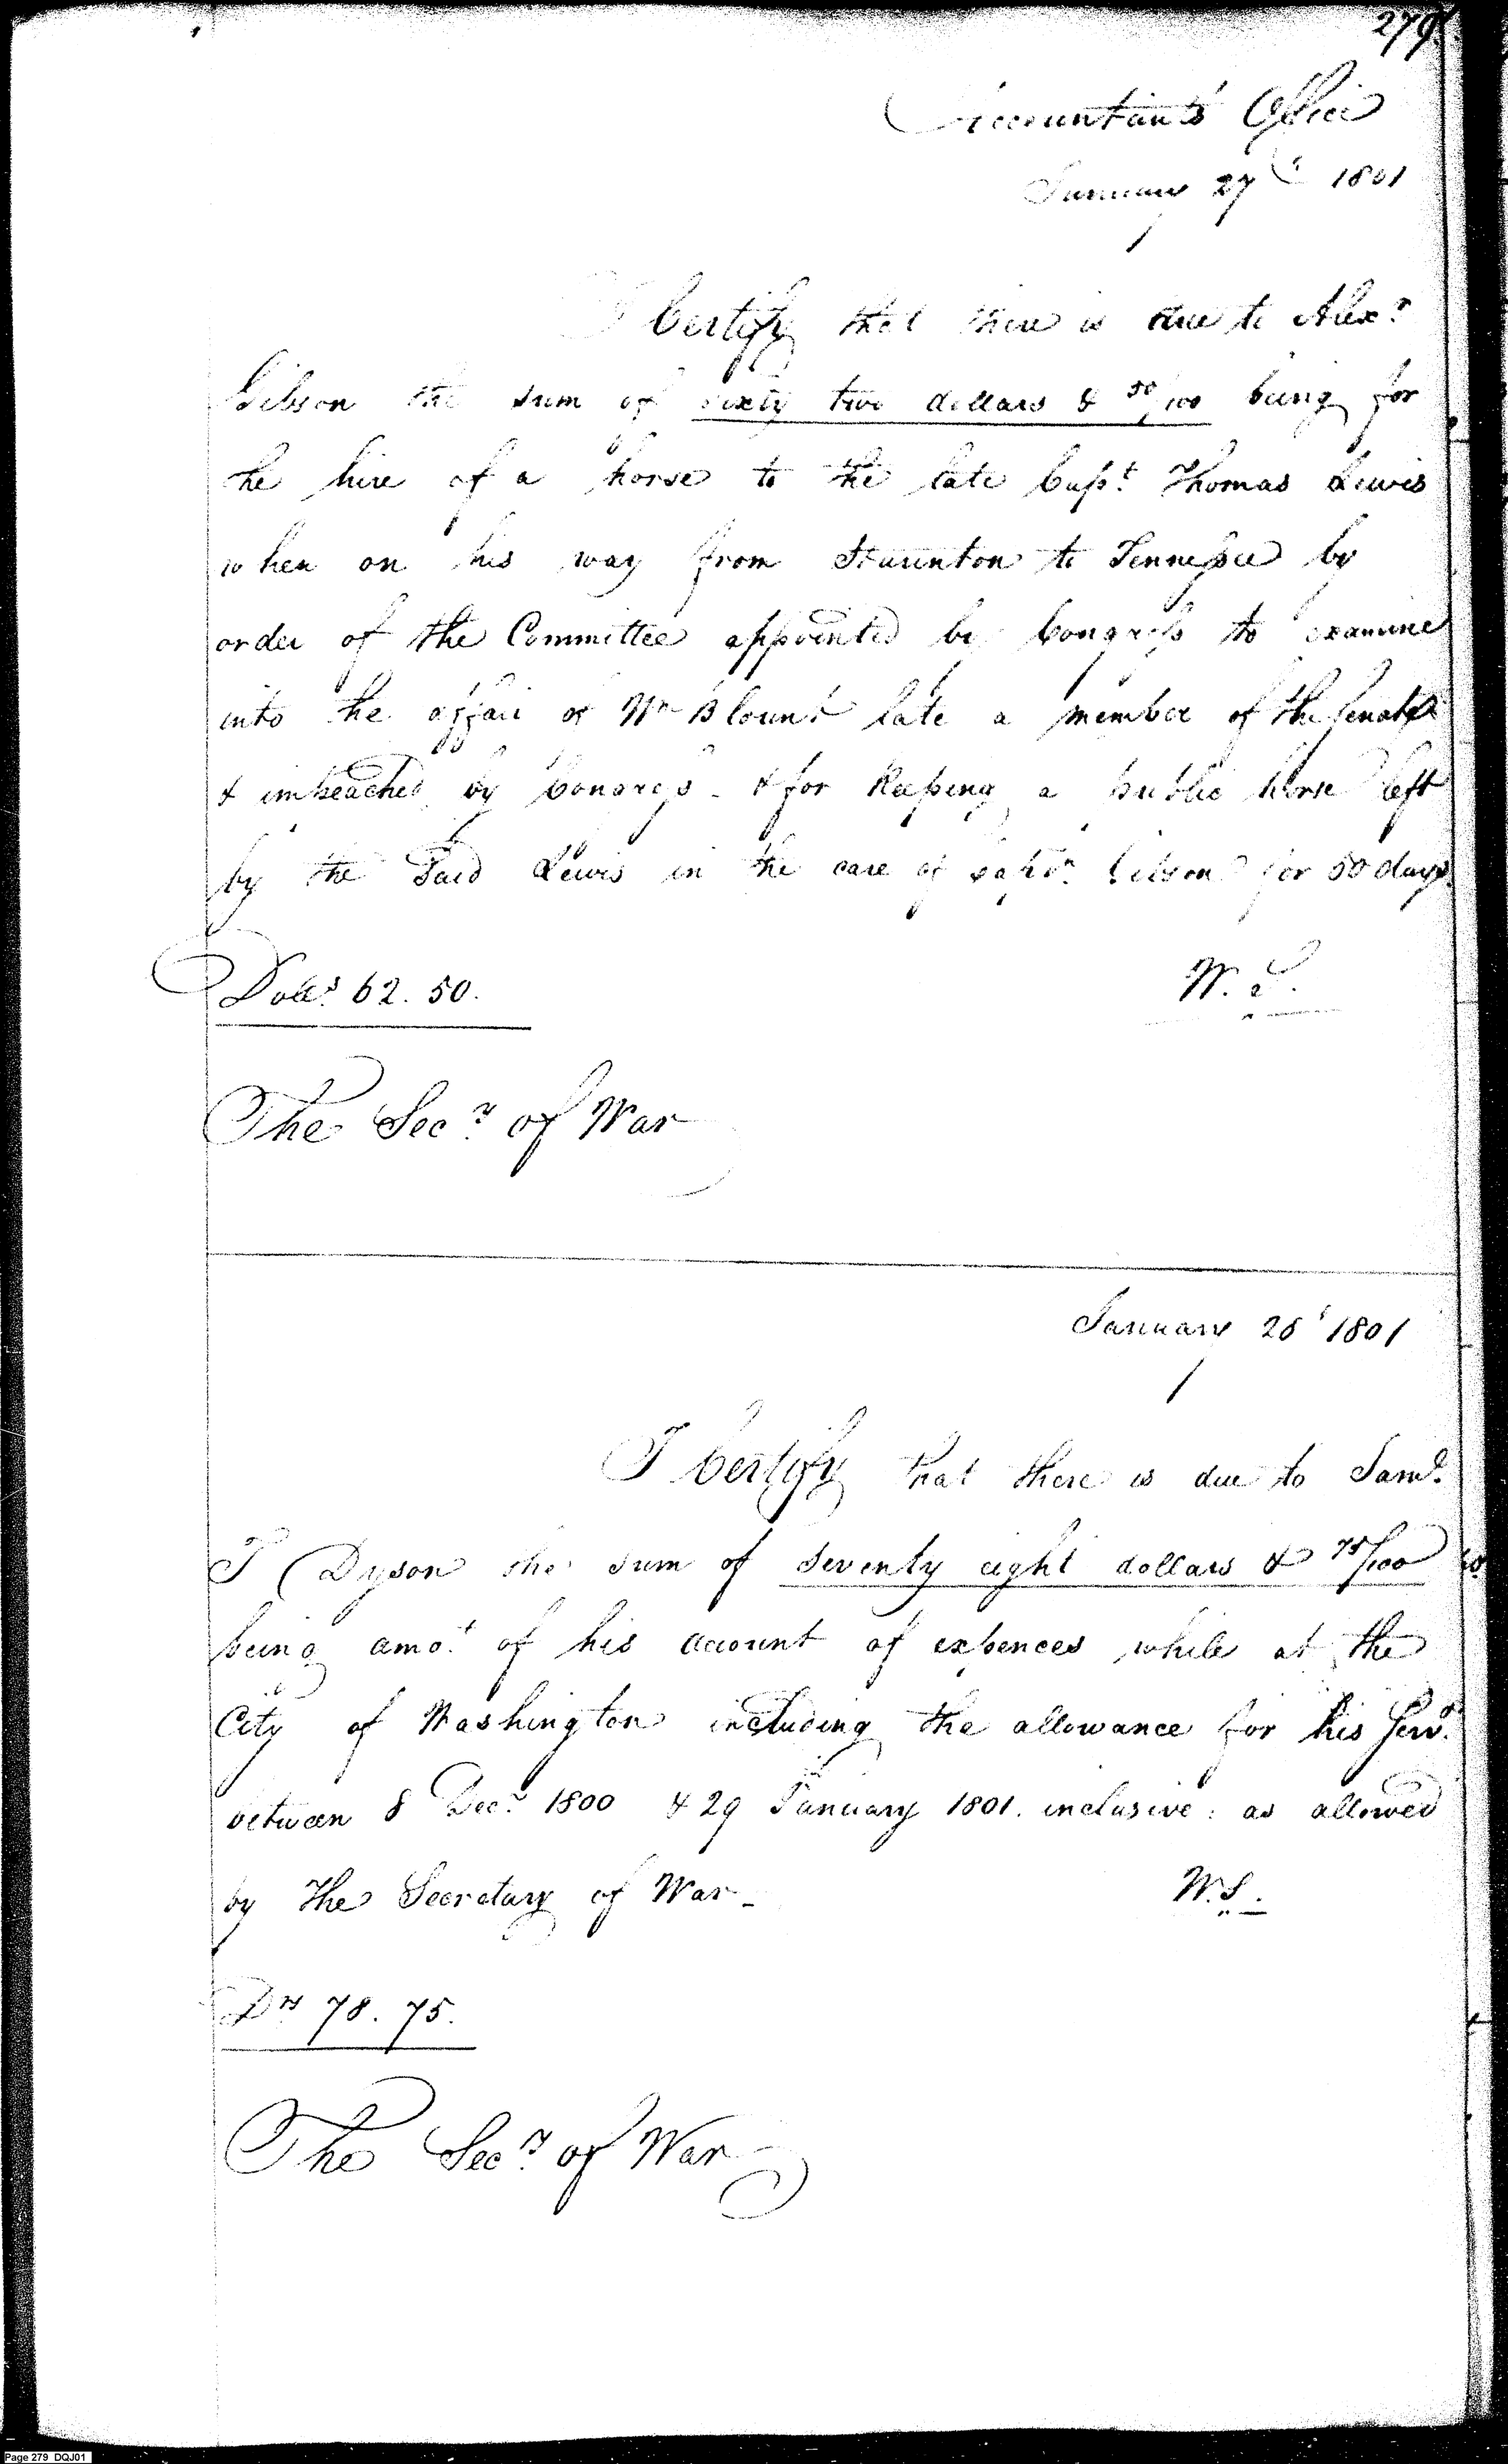 279.
Accountant's Office
January 27th 1801
I Certify that there is due to Alexr
Gibson the sum of sixty two dollars & 50/100 being for
the hire of a horse to the late Capt. Thomas Lewis
when on his way from Staunton to Tennessee by
order of the Committee appointed by Congress to examine
into the affair of Wm Blount late a member of the Senate
& impeached by Congress - & for keeping a public horse left
by the said Lewis in the care of said Gibson for 50 days.
Dolls. 62.50.
W. S.
The Secy. of War
January 28 1801
I Certify that there is due to Saml.
T Dyson the sum of seventy eight dollars & 75/100
being amot. of his account of expences while at the
City of Washington including the allowance for his Serv.
between 8 Decr. 1800 & 29 January 1801. inclusive: as allowed
by the Secretary of War -
W. S.
Drs 78.75.
The Secy. of War
Page 279 DQJ01